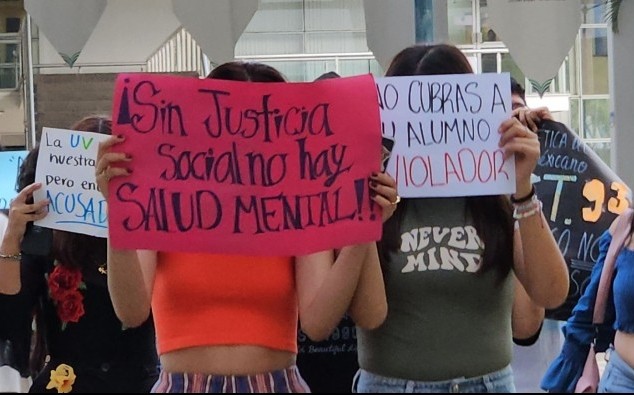 ¡Sin Justicia
Social no hay
SALUD MENTAL!!
NO CUBRAS A
ALUMNO
VIOLADOR
La UV
nuestra
pero en
ACUSAD
NEVER
MIND
T. 93
NO